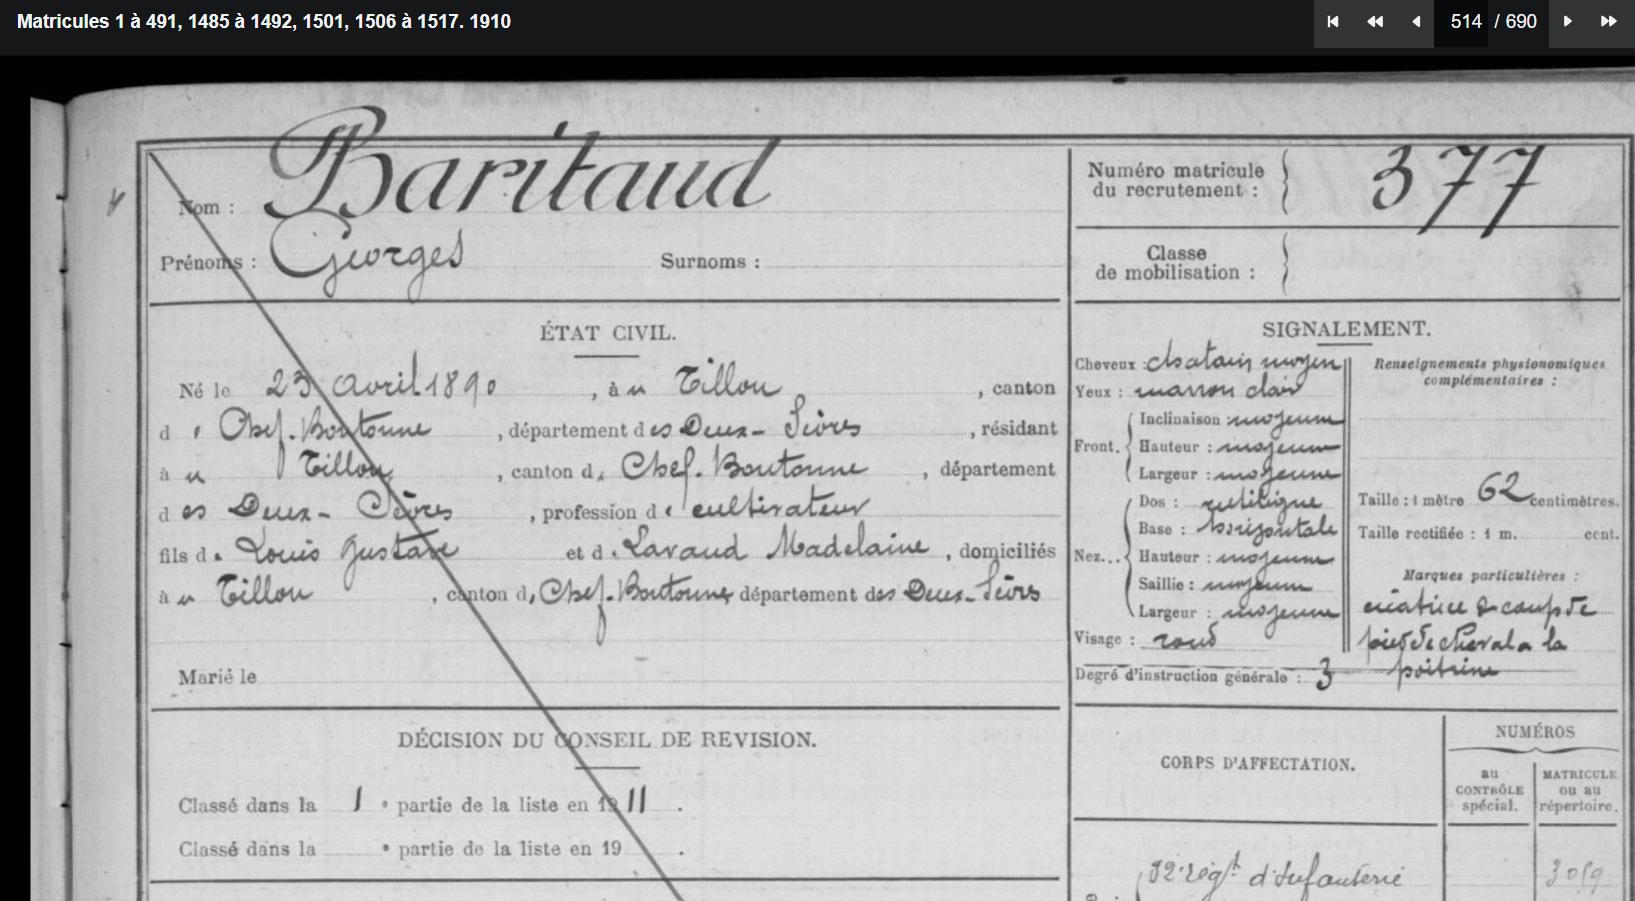 Matricules 1 à 491, 1485 à 1492, 1501, 1506 à 1517. 1910
514 / 690
Nom : Baritaud
Prénoms : Georges Surnoms :
Numéro matricule du recrutement : 377
Classe de mobilisation :
ÉTAT CIVIL.
Né le 23 avril 1890, à Tillou, canton
d Chef-Boutonne, département des Deux-Sèvres, résidant
à Tillou, canton d Chef-Boutonne, département
des Deux-Sèvres, profession de cultivateur
fils de Louis Gustave et de Lavaud Madelaine, domiciliés
à Tillou, canton d Chef-Boutonne département des Deux-Sèvres
Marié le
DÉCISION DU CONSEIL DE REVISION.
Classé dans la 1 e partie de la liste en 1911.
Classé dans la e partie de la liste en 19 .
SIGNALEMENT.
Cheveux : chatain moyen
Yeux : marron clair
Front. Inclinaison : moyenne
Hauteur : moyenne
Largeur : moyenne
Nez... Dos : rectiligne
Base : horizontale
Hauteur : moyenne
Saillie : moyenne
Largeur : moyenne
Visage : rond
Degré d'instruction générale : 3
Renseignements physionomiques
complémentaires :
Taille : 1 mètre 62 centimètres.
Taille rectifiée : 1 m. cent.
Marques particulières :
cicatrice de coup de
pied de cheval a la
poitrine
CORPS D'AFFECTATION.
NUMÉROS
au
CONTRÔLE
spécial.
MATRICULE
ou au
répertoire.
régt d'Infanterie